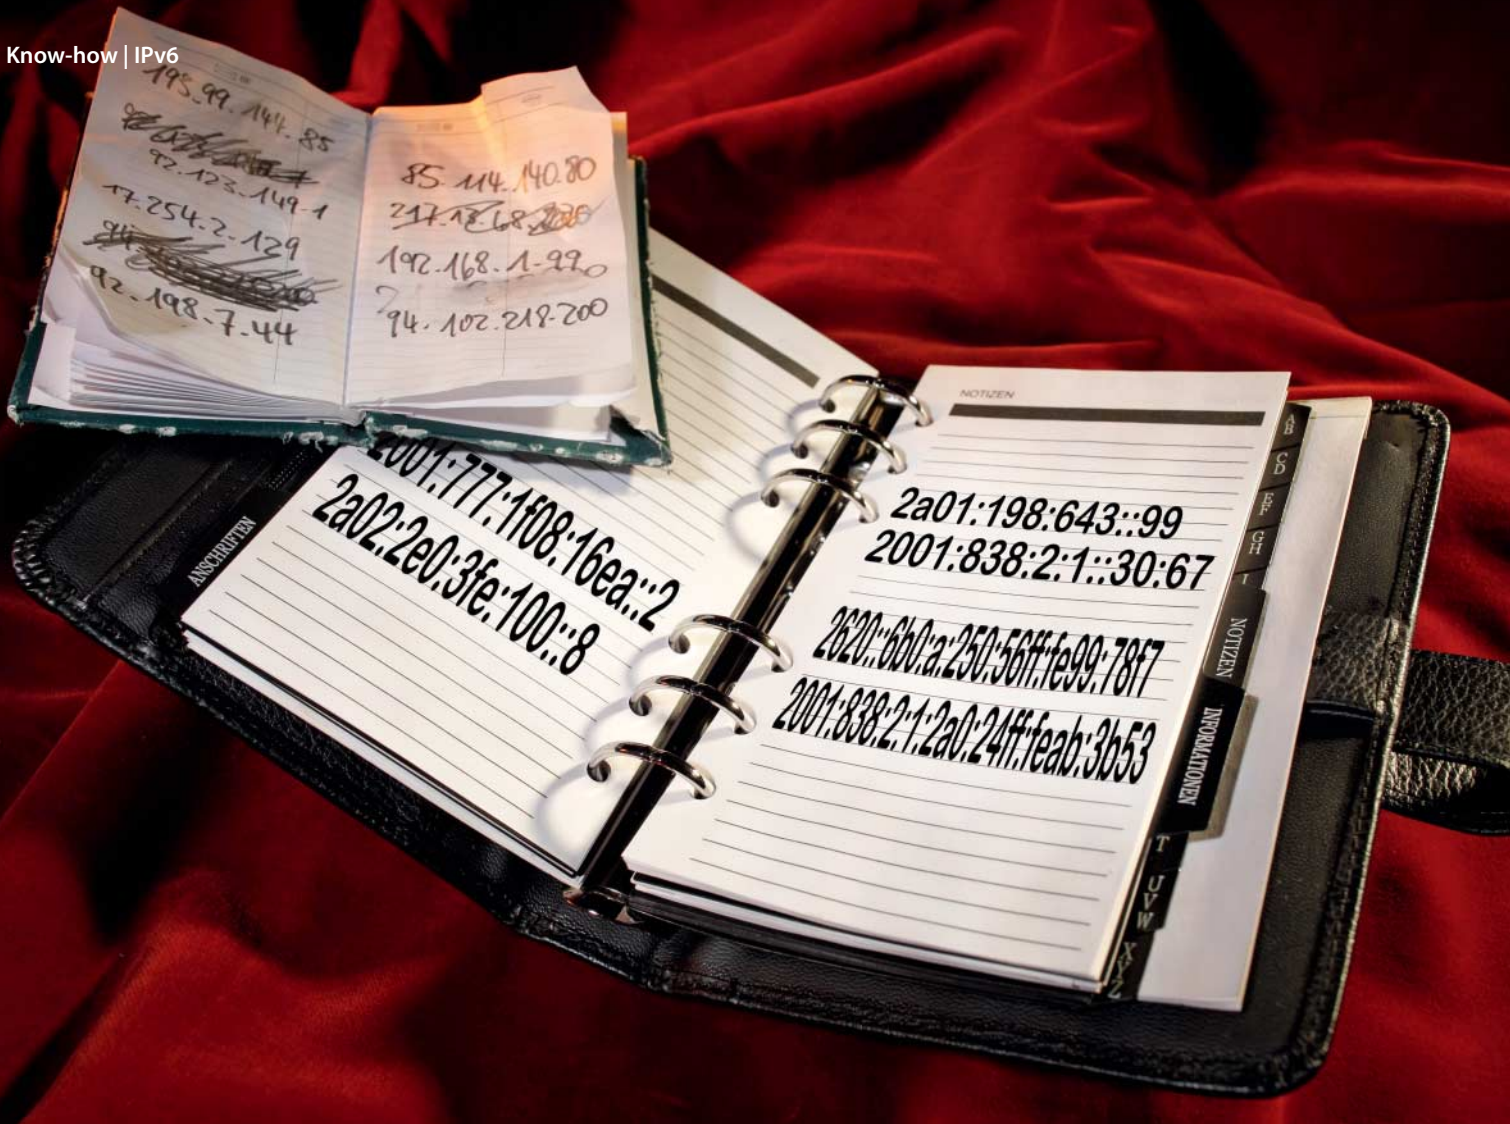 Know-how | IPv6
193.99.144.85
92.123.149.1
17.254.2.129
92.198.7.44
85.114.140.80
192.168.1.99
94.102.218.200
ANSCHRIFTEN
2001:777:1f08:16ea::2
2a02:2e0:3fe:100::8
NOTIZEN
2a01:198:643::99
2001:838:2:1::30:67
2620::6b0:a:250:56ff:fe99:78f7
2001:838:2:1:2a0:24ff:feab:3b53
B
C D
E F
G H
I
NOTIZEN
INFORMATIONEN
T
U V W
X Y Z